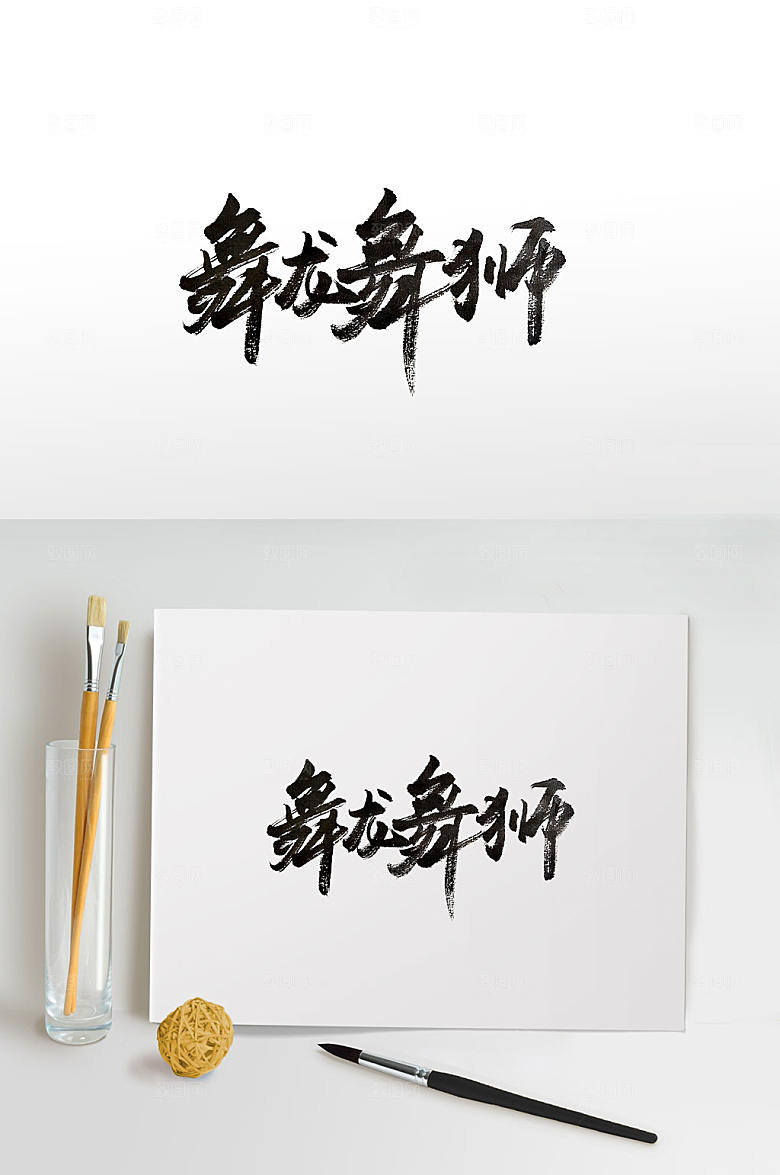 舞龙舞狮
舞龙舞狮